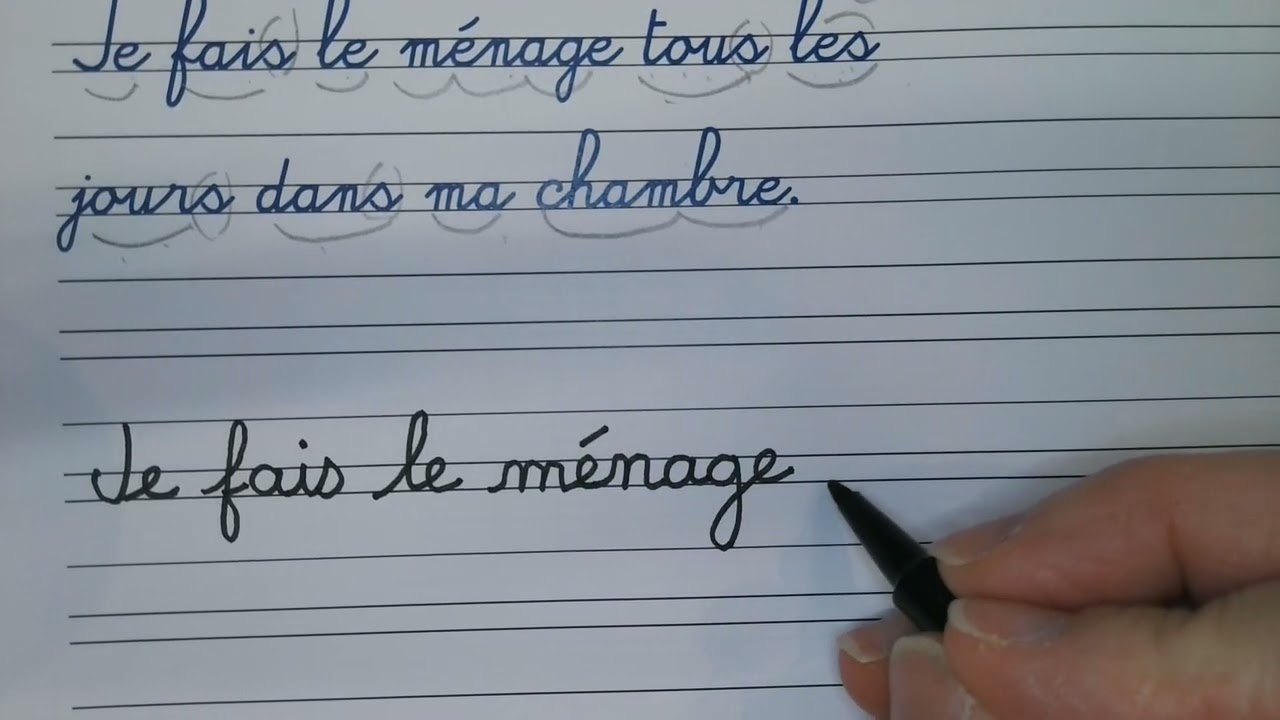 Je fais le ménage tous les
jours dans ma chambre.
Je fais le ménage